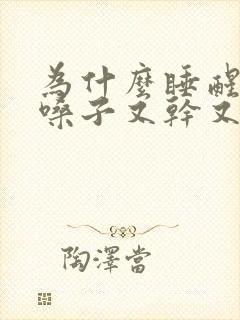 為什麼睡醒
嗓子又幹又
陶澤當